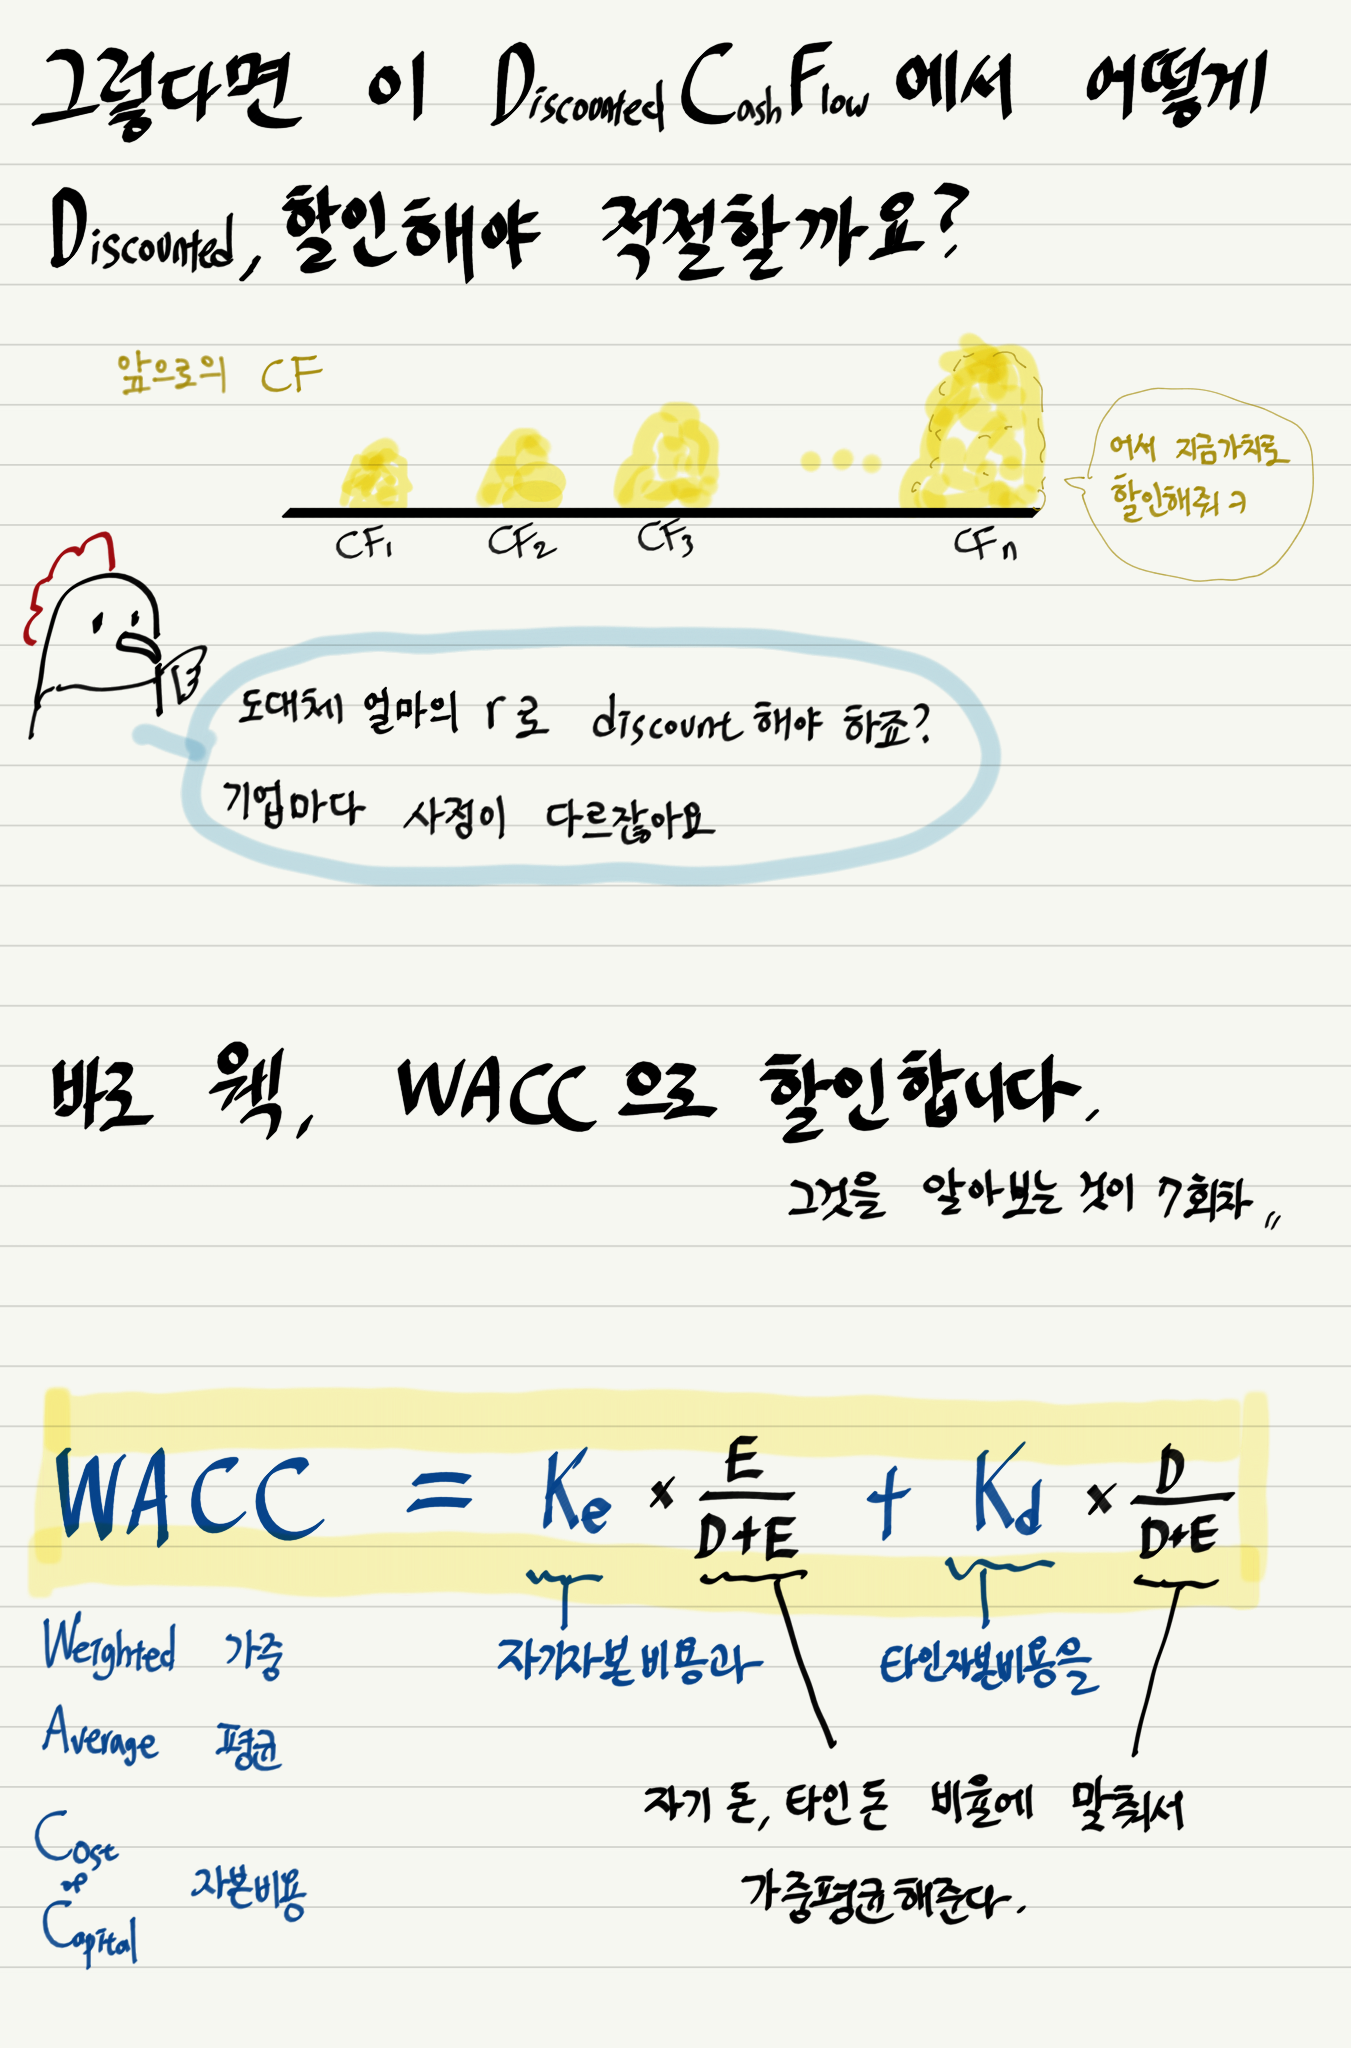 그렇다면 이 Discounted Cash Flow 에서 어떻게
Discounted, 할인해야 적절할까요?
앞으로의 CF
어서 지금가치로
할인해줘 ㅋ
CF1 CF2 CF3 CFn
도대체 얼마의 r로 discount 해야 하죠?
기업마다 사정이 다르잖아요
바로 웩, WACC으로 할인합니다.
그것을 알아보는 것이 7회차 〃
WACC = Ke × E/(D+E) + Kd × D/(D+E)
자기자본비용과 타인자본비용을
자기 돈, 타인 돈 비율에 맞춰서
가중평균해준다.
Weighted 가중
Average 평균
Cost
of 자본비용
Capital